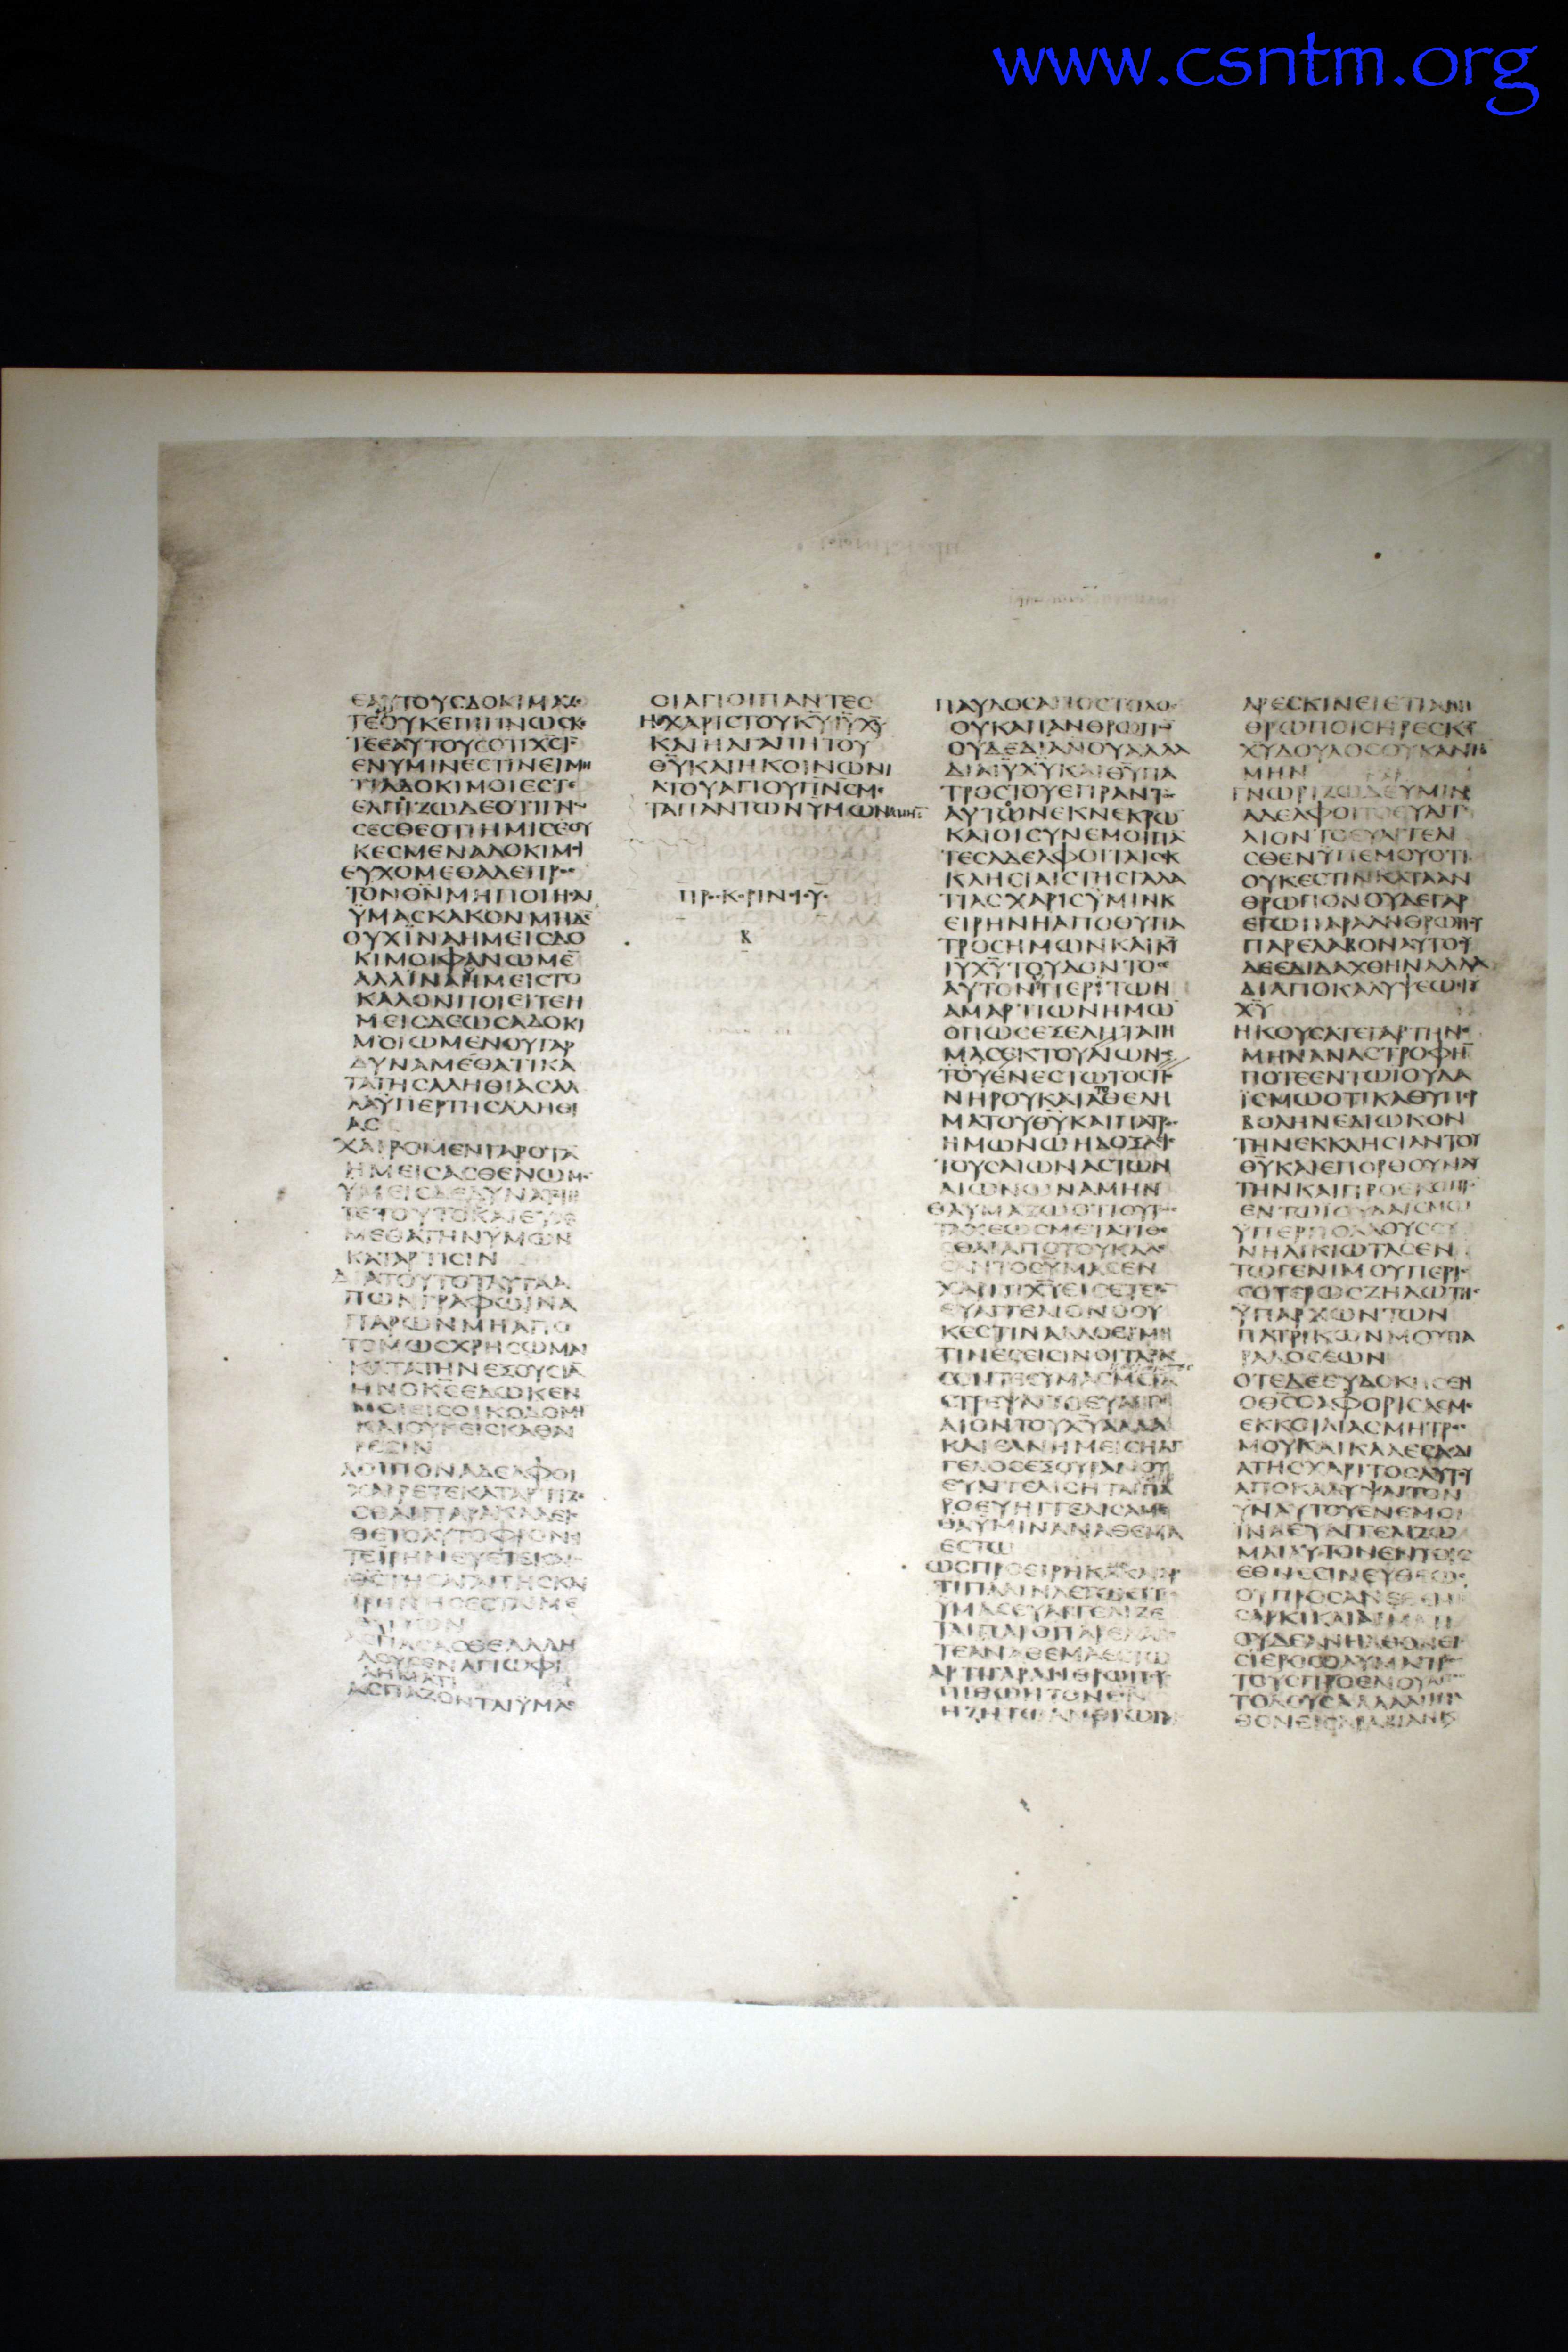 www.csntm.org
ΕΑΥΤΟΥΣΔΟΚΙΜΑΖΕ
ΤΕΟΥΚΕΠΙΓΙΝΩΣΚΕ
ΤΕΕΑΥΤΟΥΣΟΤΙΧΣΙΣ
ΕΝΥΜΙΝΕΣΤΙΝΕΙΜΗ
ΤΙΑΔΟΚΙΜΟΙΕΣΤΕ
ΕΛΠΙΖΩΔΕΟΤΙΓΝΩ
ΣΕΣΘΕΟΤΙΗΜΙΣΟΥ
ΚΕΣΜΕΝΑΔΟΚΙΜΟΙ
ΕΥΧΟΜΕΘΑΔΕΠΡΟΣ
ΤΟΝΘΝΜΗΠΟΙΗΣΑΙ
ΥΜΑΣΚΑΚΟΝΜΗΔΕ
ΟΥΧΙΝΑΗΜΕΙΣΔΟ
ΚΙΜΟΙΦΑΝΩΜΕ
ΑΛΛΙΝΑΗΜΕΙΣΤΟ
ΚΑΛΟΝΠΟΙΕΙΤΕΗ
ΜΕΙΣΔΕΩΣΑΔΟΚΙ
ΜΟΙΩΜΕΝΟΥΓΑΡ
ΔΥΝΑΜΕΘΑΤΙΚΑ
ΤΑΤΗΣΑΛΗΘΙΑΣΑΛ
ΛΑΥΠΕΡΤΗΣΑΛΗΘΙ
ΑΣ
ΧΑΙΡΟΜΕΝΓΑΡΟΤΑ
ΗΜΕΙΣΑΣΘΕΝΩΜΕ
ΥΜΕΙΣΔΕΔΥΝΑΤΟΙΗ
ΤΕΤΟΥΤΟΚΑΙΕΥΧΟ
ΜΕΘΑΤΗΝΥΜΩΝ
ΚΑΤΑΡΤΙΣΙΝ
ΔΙΑΤΟΥΤΟΤΑΥΤΑΑ
ΠΩΝΓΡΑΦΩΙΝΑ
ΠΑΡΩΝΜΗΑΠΟ
ΤΟΜΩΣΧΡΗΣΩΜΑΙ
ΚΑΤΑΤΗΝΕΞΟΥΣΙΑ
ΗΝΟΚΣΕΔΩΚΕΝ
ΜΟΙΕΙΣΟΙΚΟΔΟΜΗ
ΚΑΙΟΥΚΕΙΣΚΑΘΑΙ
ΡΕΣΙΝ
ΛΟΙΠΟΝΑΔΕΛΦΟΙ
ΧΑΙΡΕΤΕΚΑΤΑΡΤΙΖΕ
ΣΘΑΙΠΑΡΑΚΑΛΕΙΣ
ΘΕΤΟΑΥΤΟΦΡΟΝΙ
ΤΕΙΡΗΝΕΥΕΤΕΚΑΙΟ
ΘΣΤΗΣΑΓΑΠΗΣΚΑΙ
ΙΡΗΝΗΣΕΣΤΑΙΜΕ
ΑΣΠΑΣΑΣΘΕΑΛΛΗ
ΛΟΥΣΕΝΑΓΙΩΦΙ
ΛΗΜΑΤΙ
ΑΣΠΑΖΟΝΤΑΙΥΜΑΣ
ΟΙΑΓΙΟΙΠΑΝΤΕΣ
ΗΧΑΡΙΣΤΟΥΚΥΙΥΧΥ
ΚΑΙΗΑΓΑΠΗΤΟΥ
ΘΥΚΑΙΗΚΟΙΝΩΝΙ
ΑΤΟΥΑΓΙΟΥΠΝΣΜΕ
ΤΑΠΑΝΤΩΝΥΜΩΝΑΜΗΝ
ΠΑΥΛΟΣΑΠΟΣΤΟΛΟΣ
ΟΥΚΑΠΑΝΘΡΩΠΩ
ΟΥΔΕΔΙΑΝΟΥΑΛΛΑ
ΔΙΑΙΥΧΥΚΑΙΘΥΠΑ
ΤΡΟΣΤΟΥΕΓΙΡΑΝΤΟΣ
ΑΥΤΟΝΕΚΝΕΚΡΩ
ΚΑΙΟΙΣΥΝΕΜΟΙΠΑ
ΤΕΣΑΔΕΛΦΟΙΤΑΙΣΕΚ
ΚΛΗΣΙΑΙΣΤΗΣΓΑΛΑ
ΤΙΑΣΧΑΡΙΣΥΜΙΝΚ
ΕΙΡΗΝΗΑΠΟΘΥΠΑ
ΤΡΟΣΗΜΩΝΚΑΙΚΥ
ΙΥΧΥΤΟΥΔΟΝΤΟΣ
ΑΥΤΟΝΠΕΡΙΤΩΝ
ΑΜΑΡΤΙΩΝΗΜΩ
ΟΠΩΣΕΞΕΛΗΤΑΙΗ
ΜΑΣΕΚΤΟΥΑΙΩΝΟΣ
ΤΟΥΕΝΕΣΤΩΤΟΣΠΟ
ΝΗΡΟΥΚΑΤΑΤΟΘΕΛΗ
ΜΑΤΟΥΘΥΚΑΙΠΑΤΡΟΣ
ΗΜΩΝΩΗΔΟΞΑΕΙΣ
ΤΟΥΣΑΙΩΝΑΣΤΩΝ
ΑΙΩΝΩΝΑΜΗΝ
ΘΑΥΜΑΖΩΟΤΙΟΥΤΩΣ
ΤΑΧΕΩΣΜΕΤΑΤΙΘΕ
ΣΘΑΙΑΠΟΤΟΥΚΑΛΕ
ΣΑΝΤΟΣΥΜΑΣΕΝ
ΧΑΡΙΤΙΧΥΕΙΣΕΤΕΡΟ
ΕΥΑΓΓΕΛΙΟΝΟΟΥ
ΚΕΣΤΙΝΑΛΛΟΕΙΜΗ
ΤΙΝΕΣΕΙΣΙΝΟΙΤΑΡΑΣ
ΣΟΝΤΕΣΥΜΑΣ
ΣΤΡΕΨΑΙΤΟΕΥΑΓΓΕ
ΛΙΟΝΤΟΥΧΥΑΛΛΑ
ΚΑΙΕΑΝΗΜΕΙΣΗΑΓ
ΓΕΛΟΣΕΞΟΥΡΑΝΟΥ
ΕΥΑΓΓΕΛΙΣΗΤΑΙΠΑ
ΡΟΕΥΗΓΓΕΛΙΣΑΜΕ
ΘΑΥΜΙΝΑΝΑΘΕΜΑ
ΕΣΤΩ
ΩΣΠΡΟΕΙΡΗΚΑΚΑΙΑΡ
ΤΙΠΑΛΙΝΛΕΓΩΕΙΤΙΣ
ΥΜΑΣΕΥΑΓΓΕΛΙΖΕ
ΤΑΙΠΑΡΟΠΑΡΕΛΑΒΕ
ΤΕΑΝΑΘΕΜΑΕΣΤΩ
ΑΡΤΙΓΑΡΑΝΘΡΩΠΟΥΣ
ΠΙΘΩΗΤΟΝΘΝ
ΗΖΗΤΩΑΝΘΡΩΠΟΙΣ
ΑΡΕΣΚΙΝΕΙΕΤΙΑΝ
ΘΡΩΠΟΙΣΗΡΕΣΚΟ
ΧΥΔΟΥΛΟΣΟΥΚΑΝΗ
ΜΗΝ
ΓΝΩΡΙΖΩΔΕΥΜΙΝ
ΑΔΕΛΦΟΙΤΟΕΥΑΓΓΕ
ΛΙΟΝΤΟΕΥΑΓΓΕΛΙ
ΣΘΕΝΥΠΕΜΟΥΟΤΙ
ΟΥΚΕΣΤΙΝΚΑΤΑΑΝ
ΘΡΩΠΟΝΟΥΔΕΓΑΡ
ΕΓΩΠΑΡΑΑΝΘΡΩΠΟΥ
ΠΑΡΕΛΑΒΟΝΑΥΤΟΥ
ΔΕΕΔΙΔΑΧΘΗΝΑΛΛΑ
ΔΙΑΠΟΚΑΛΥΨΕΩΣΙΥ
ΧΥ
ΗΚΟΥΣΑΤΕΓΑΡΤΗΝΕ
ΜΗΝΑΝΑΣΤΡΟΦΗ
ΠΟΤΕΕΝΤΩΙΟΥΔΑ
ΙΣΜΩΟΤΙΚΑΘΥΠΕΡ
ΒΟΛΗΝΕΔΙΩΚΟΝ
ΤΗΝΕΚΚΛΗΣΙΑΝΤΟΥ
ΘΥΚΑΙΕΠΟΡΘΟΥΝΑΥ
ΤΗΝΚΑΙΠΡΟΕΚΟΠΤΟ
ΕΝΤΩΙΟΥΔΑΙΣΜΩ
ΥΠΕΡΠΟΛΛΟΥΣΣΥ
ΝΗΛΙΚΙΩΤΑΣΕΝ
ΤΩΓΕΝΙΜΟΥΠΕΡΙΣ
ΣΟΤΕΡΩΣΖΗΛΩΤΗΣ
ΥΠΑΡΧΩΝΤΩΝ
ΠΑΤΡΙΚΩΝΜΟΥΠΑ
ΡΑΔΟΣΕΩΝ
ΟΤΕΔΕΕΥΔΟΚΗΣΕΝ
ΟΘΣΟΑΦΟΡΙΣΑΣΜΕ
ΕΚΚΟΙΛΙΑΣΜΗΤΡΟΣ
ΜΟΥΚΑΙΚΑΛΕΣΑΣΔΙ
ΑΤΗΣΧΑΡΙΤΟΣΑΥΤΟΥ
ΑΠΟΚΑΛΥΨΑΙΤΟΝ
ΥΝΑΥΤΟΥΕΝΕΜΟΙ
ΙΝΑΕΥΑΓΓΕΛΙΖΩ
ΜΑΙΑΥΤΟΝΕΝΤΟΙΣ
ΕΘΝΕΣΙΝΕΥΘΕΩΣ
ΟΥΠΡΟΣΑΝΕΘΕΜΗ
ΣΑΡΚΙΚΑΙΑΙΜΑΤΙ
ΟΥΔΕΑΝΗΛΘΟΝΕΙ
ΣΙΕΡΟΣΟΛΥΜΑΠΡΟΣ
ΤΟΥΣΠΡΟΕΜΟΥΑΠΟ
ΤΟΛΟΥΣΑΛΛΑΑΠΗΛ
ΘΟΝΕΙΣΑΡΑΒΙΑΝΚ